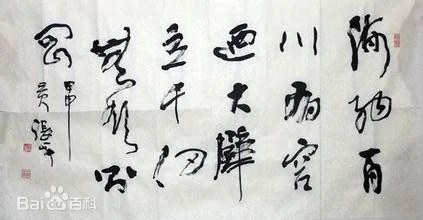 海纳百
川有容
迺大壁
立千仞
無欲則
刚
Bai百科